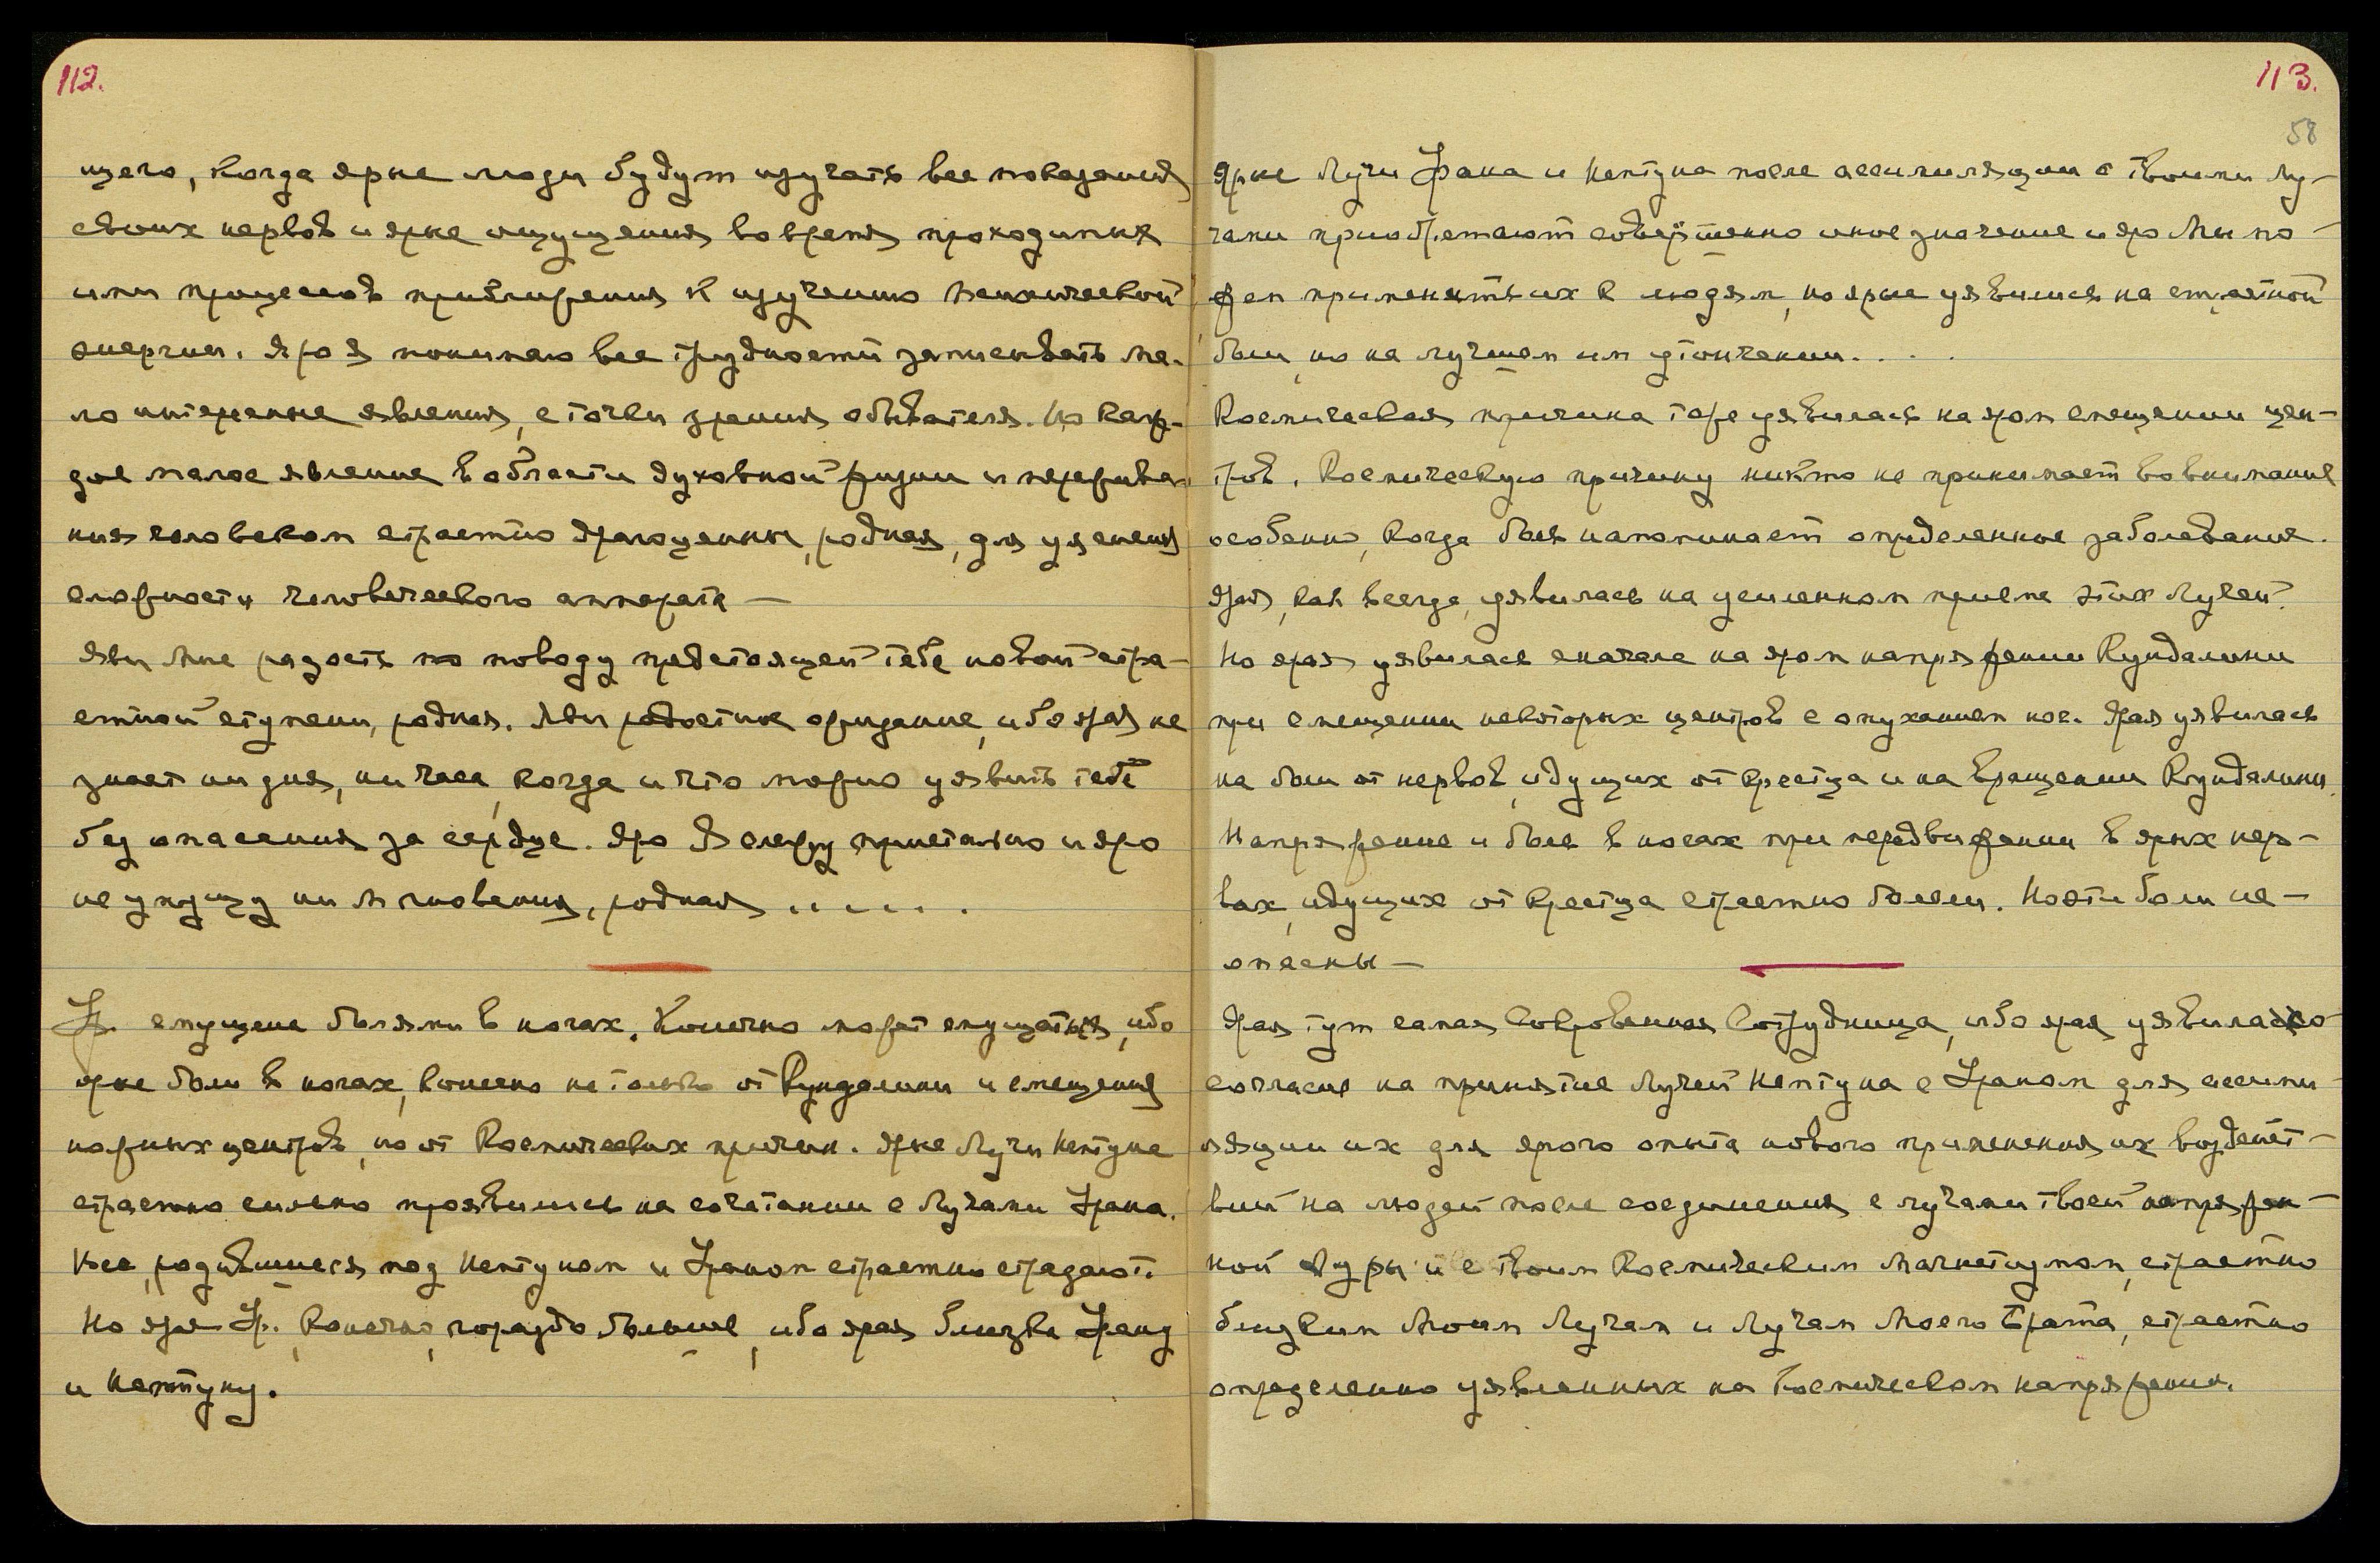 112.
щего, когда ярые люди будут изучать все показания
своих нервов и ярые ощущения во время проходимых
ими процессов приближения к изучению психической
энергии. Яро Я понимаю все трудности записывать ма-
ло интересные явления, с точки зрения обывателя. Но каж-
дое малое явление в области духовной жизни и пережива-
ния человеком страстно драгоценны, родная, для уяснения
сложности человеческого аппарата —
Яви Мне радость по поводу предстоящей тебе новой стра-
стной ступени, родная. Яви радостное ожидание, ибо ярая не
знает ни дня, ни часа, когда и что можно уявить тебе
без опасения за сердце. Яро Я слежу пристально и яро
не упущу ни мгновения, родная .....
Ур. смущена болями в ногах. Конечно может смущаться, ибо
ярые боли в ногах, конечно не только от Кундалини и смещения
ножных центров, но от Космических причин. Ярые Лучи Нептуна
страстно сильно проявились на сочетании с Лучами Урана.
Все, родившиеся под Нептуном и Ураном страстно страдают.
Но ярая Ур., конечно, гораздо больше, ибо ярая близка Урану
и Нептуну.
113.
58
Ярые Лучи Урана и Нептуна после ассимиляции с твоими Лу-
чами приобретают совершенно иное значение и яро Мы мо-
жем применять их к людям, но ярые уявимся не на страстной
боли, но на лучшем им утончении....
Космическая причина тоже уявилась на яром смещении цен-
тров. Космическую причину никто не принимает во внимание
особенно, когда боль напоминает определенное заболевание.
Ярая, как всегда, уявилась на усиленном приеме этих Лучей.
Но ярая уявилась сначала на яром напряжении Кундалини
при смещении некоторых центров с опуханием ног. Ярая уявилась
на боли от нервов, идущих от крестца и на вращении Кундалини.
Напряжение и боль в ногах при передвижении в ярых нер-
вах, идущих от крестца страстно болезн. Но эти боли не-
опасны —
Ярая тут самая Сокровенная Сотрудница, ибо ярая уявила
согласие на принятие Лучей Нептуна с Ураном для ассими-
ляции их для ярого опыта нового применения их воздейст-
вий на людей после соединения с лучами твоей напряжен-
ной Ауры и с твоим Космическим Магнетизмом, страстно
близким Моим Лучам и Лучам Моего Брата, страстно
определенно уявленных на Космическом напряжении.